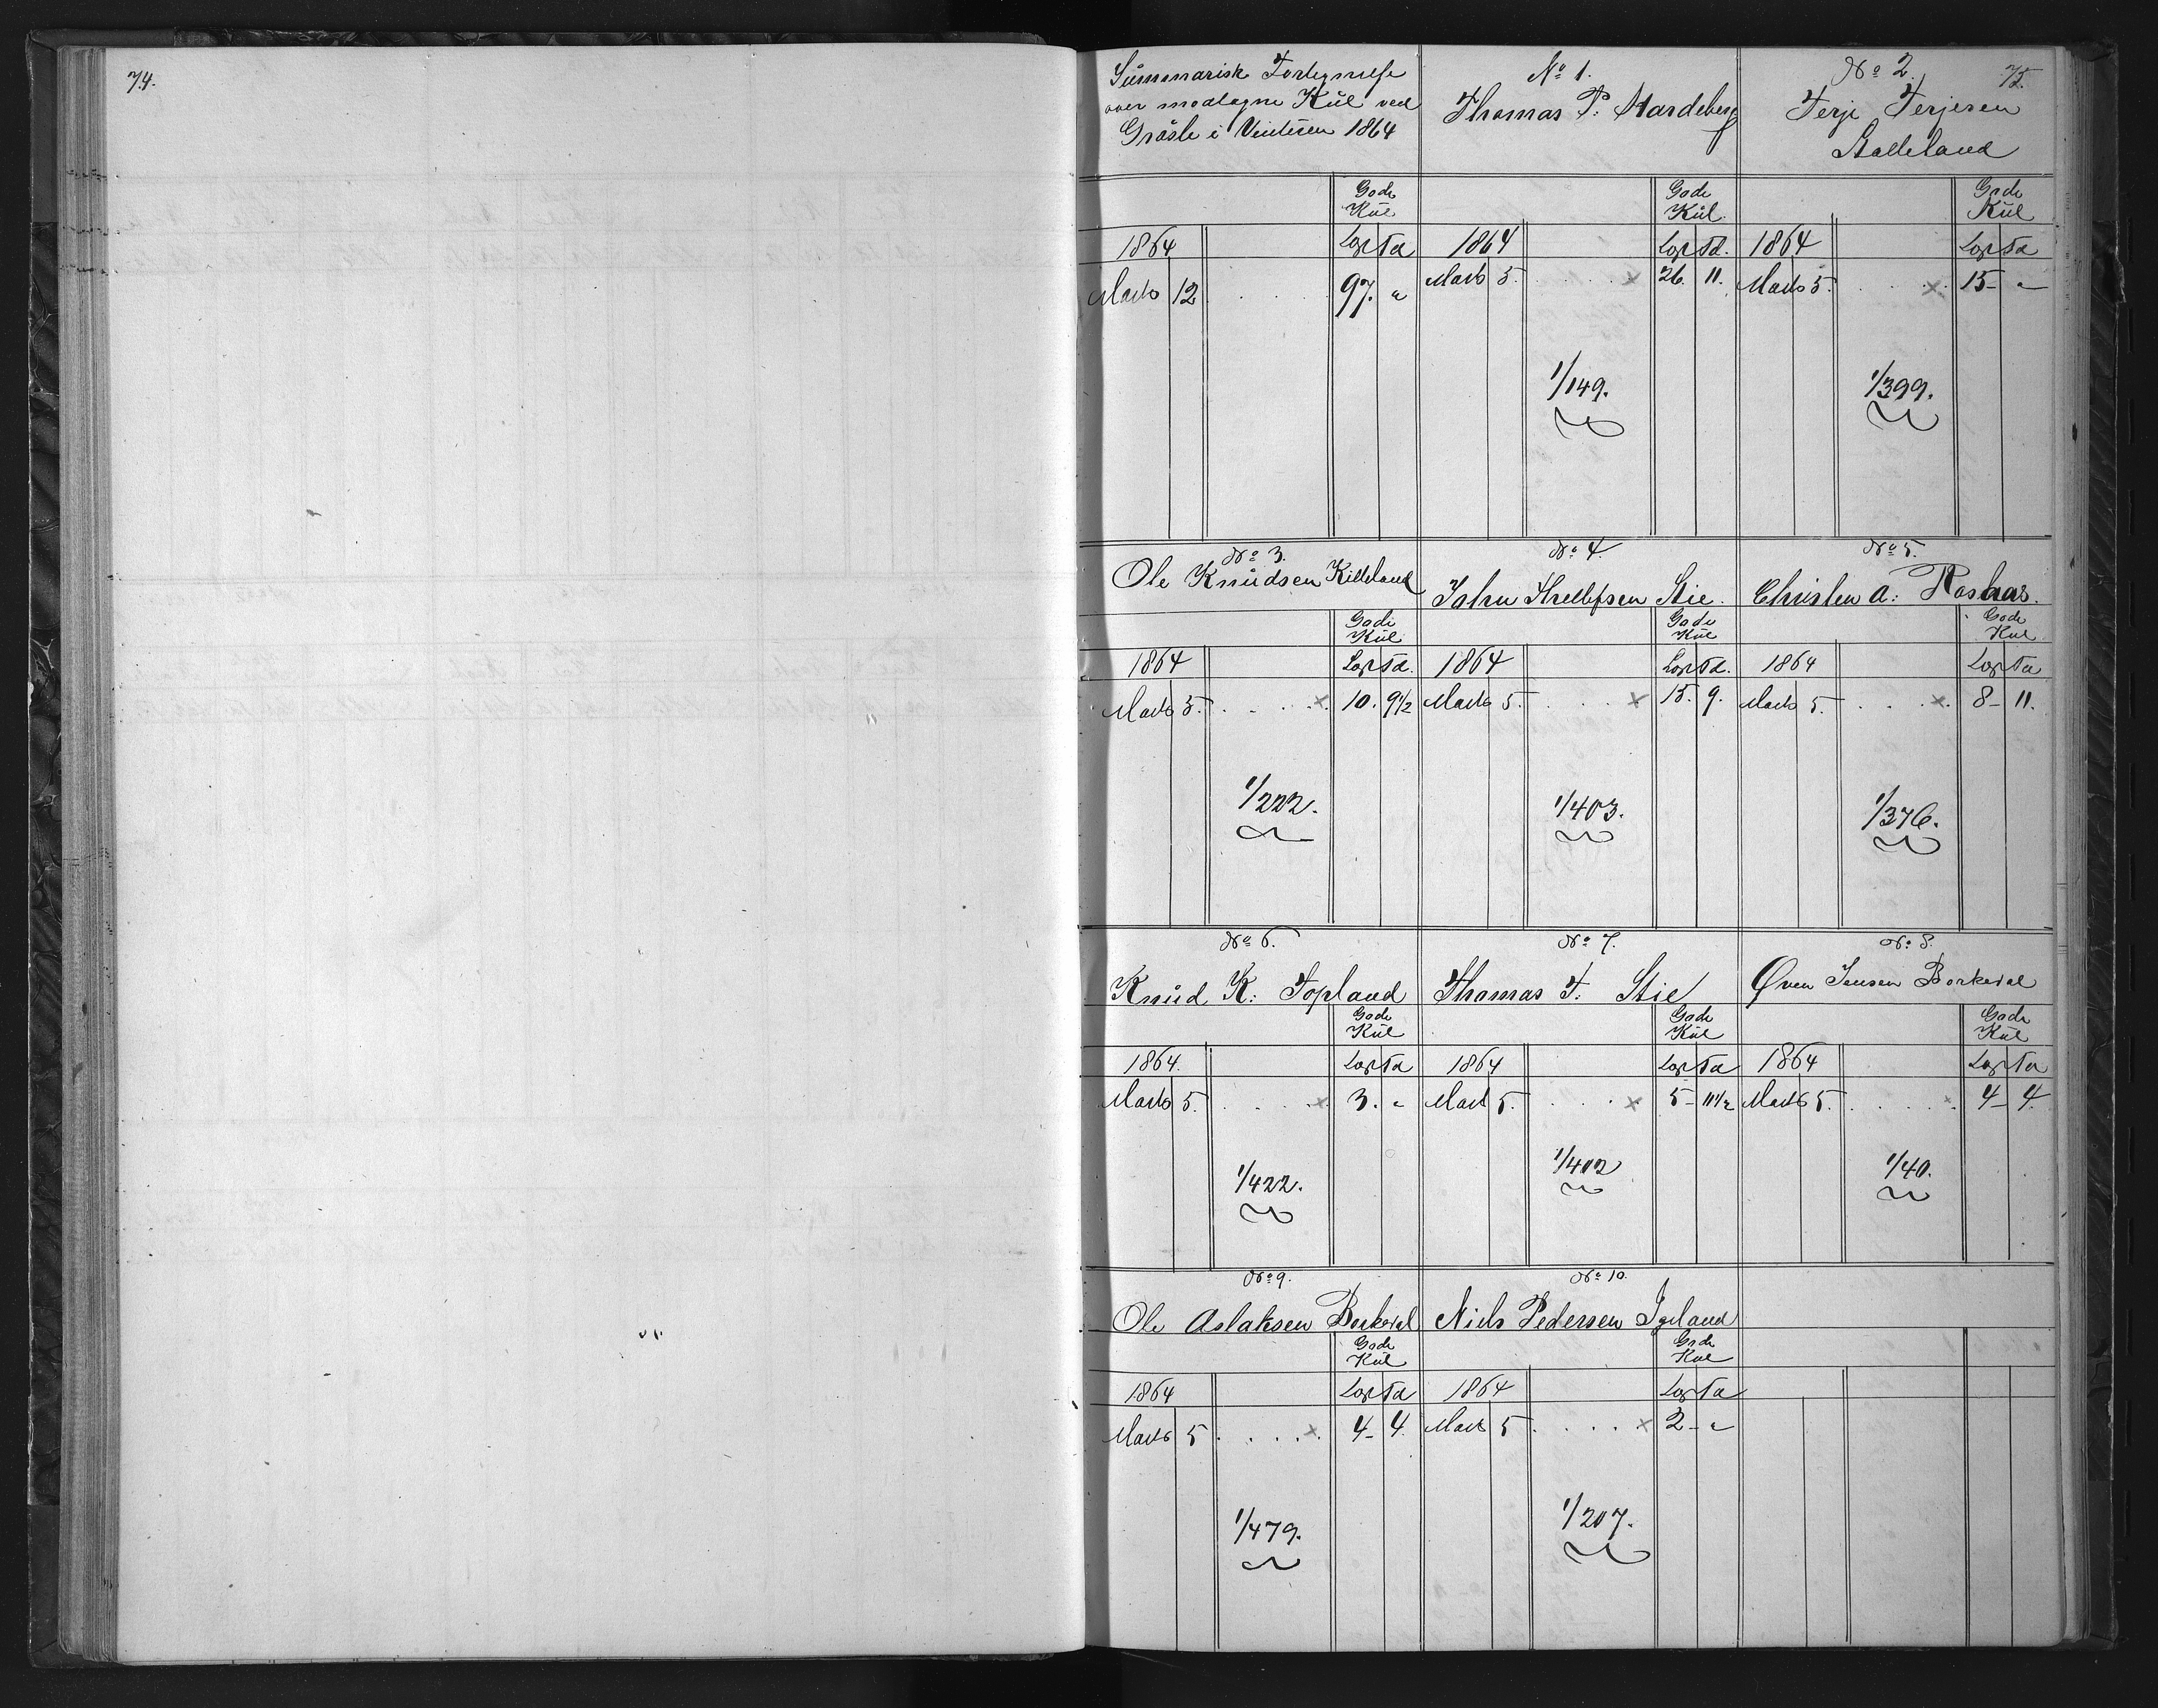 74.
75.
Summarisk Fortegnelse
over modtagne Kül ved
i Vinteren 1864
Gode
Kül
1864 Lgst Ta
Marts 12 97. "
No 1.
Thomas P. Hardeberg
Gode
Kül.
1864 Lgst Ta.
Marts 5. × 26. 11.
1/149.
No 2.
Terje Terjesen
Stalleland
Gode
Kül
1864 Lgst Ta
Marts 5. × 15 - "
1/399.
No 3.
Ole Knudsen Killeland
Gode
Kül
1864 Lgst Ta.
Marts 5. × 10. 9 1/2
1/222.
No 4.
John Thellefsen Stie.
Gode
Kül
1864 Lgst Ta.
Marts 5. × 15. 9.
1/403.
No 5.
Christen A: Rosaas.
Gode
Kül
1864 Lgst Ta
Marts 5. × 8 - 11.
1/376.
No 6.
Knud K: Topland
Gode
Kül
1864. Lgst Ta
Marts 5. × 3. "
1/422.
No 7.
Thomas T: Stie
Gode
Kül
1864 Lgst Ta
Marts 5. × 5 - 11 1/2
1/402
No 8.
Øven Jensen Borkedal
Gode
Kül
1864 Lgst Ta
Marts 5. × 4 - 4.
1/40.
No 9.
Ole Aslaksen Borkedal
Gode
Kül
1864 Lgst Ta
Marts 5 × 4 - 4.
1/479.
No 10.
Niels Pedersen Igeland
Gode
Kül
1864 Lgst Ta
Marts 5 × 2 - "
1/207.